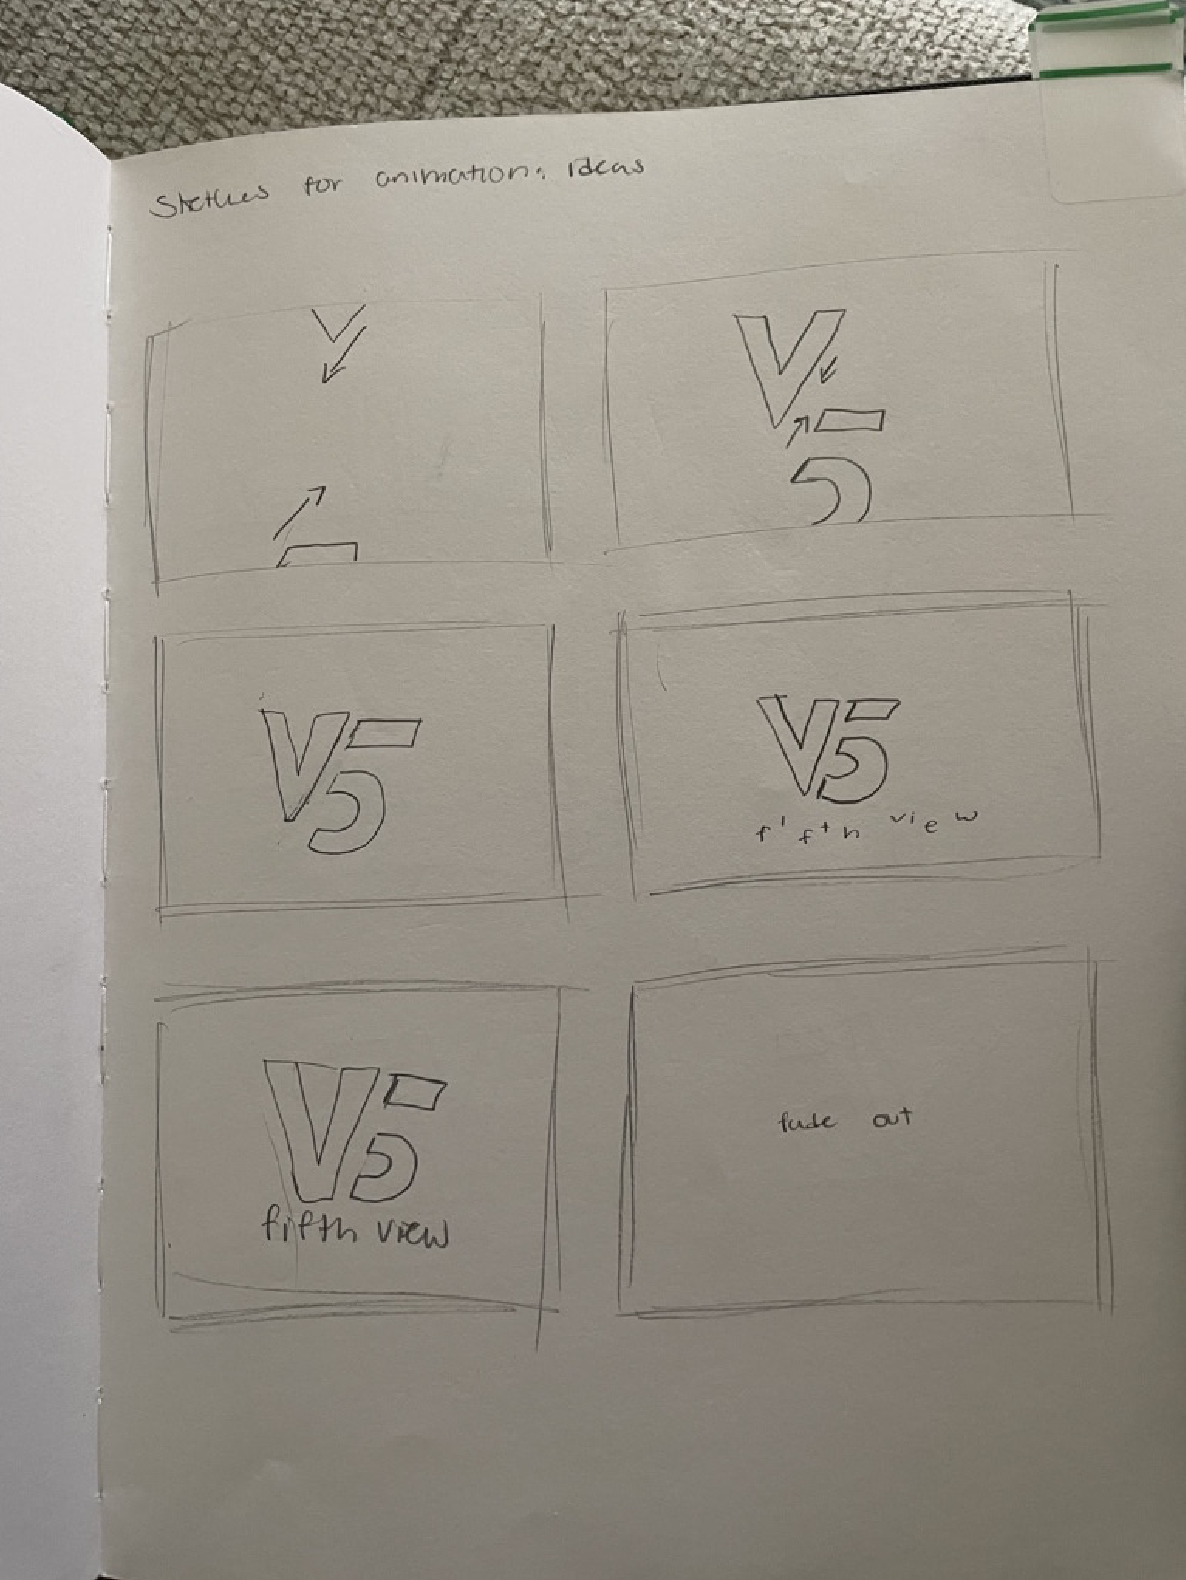 Sketches for animation: ideas
V
V
5
V5
V5
fifth view
V5
fifth view
fade out